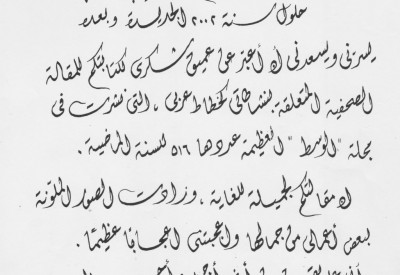 حلول سنة ٢٠٠٢ الجديدة وبعد،
يسرني ويسعدني أن أعبر عن عميق شكري لكتابتكم للمقالة
الصحفية المتعلقة بنشاطاتي كخطاط عربي، التي نشرت في
مجلة "الوسط" العظيمة عددها ٥١٦ للسنة الماضية.
ان مقالتكم لجميلة للغاية، وزادت الصور الملونة
بعض أعمالي من جمالها وأعجبتني اعجابًا عظيمًا.